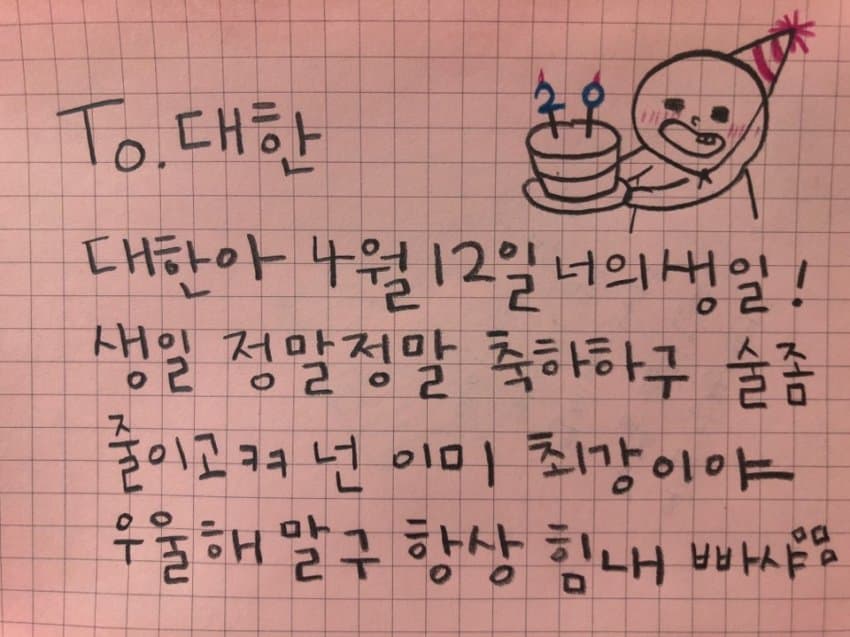 To. 대한
20
대한아 4월 12일 너의 생일!
생일 정말정말 축하하구 술좀
줄이고 ㅋㅋ 넌 이미 최강이야
우울해 말구 항상 힘내 빠샤